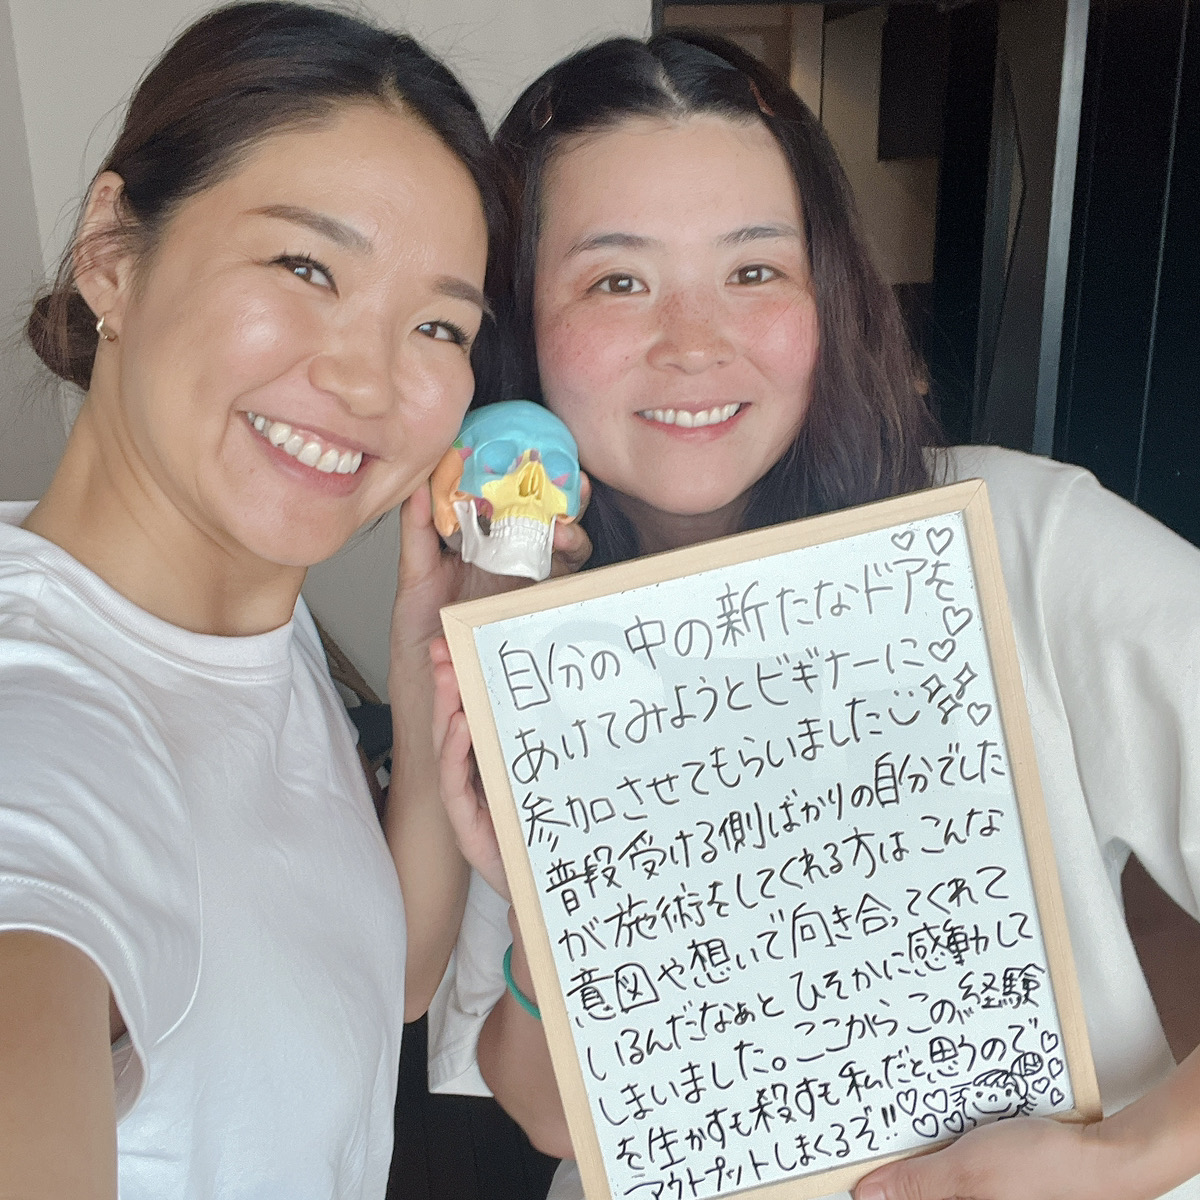 自分の中の新たなドアを
あけてみようとビギナーに
参加させてもらいました
普段受ける側ばかりの自分でした
が施術をしてくれる方はこんな
意図や想いで向き合ってくれて
いるんだなぁとひそかに感動して
しまいました。ここからこの経験
を生かすも殺すも私だと思うので
アウトプットしまくるぞ!!